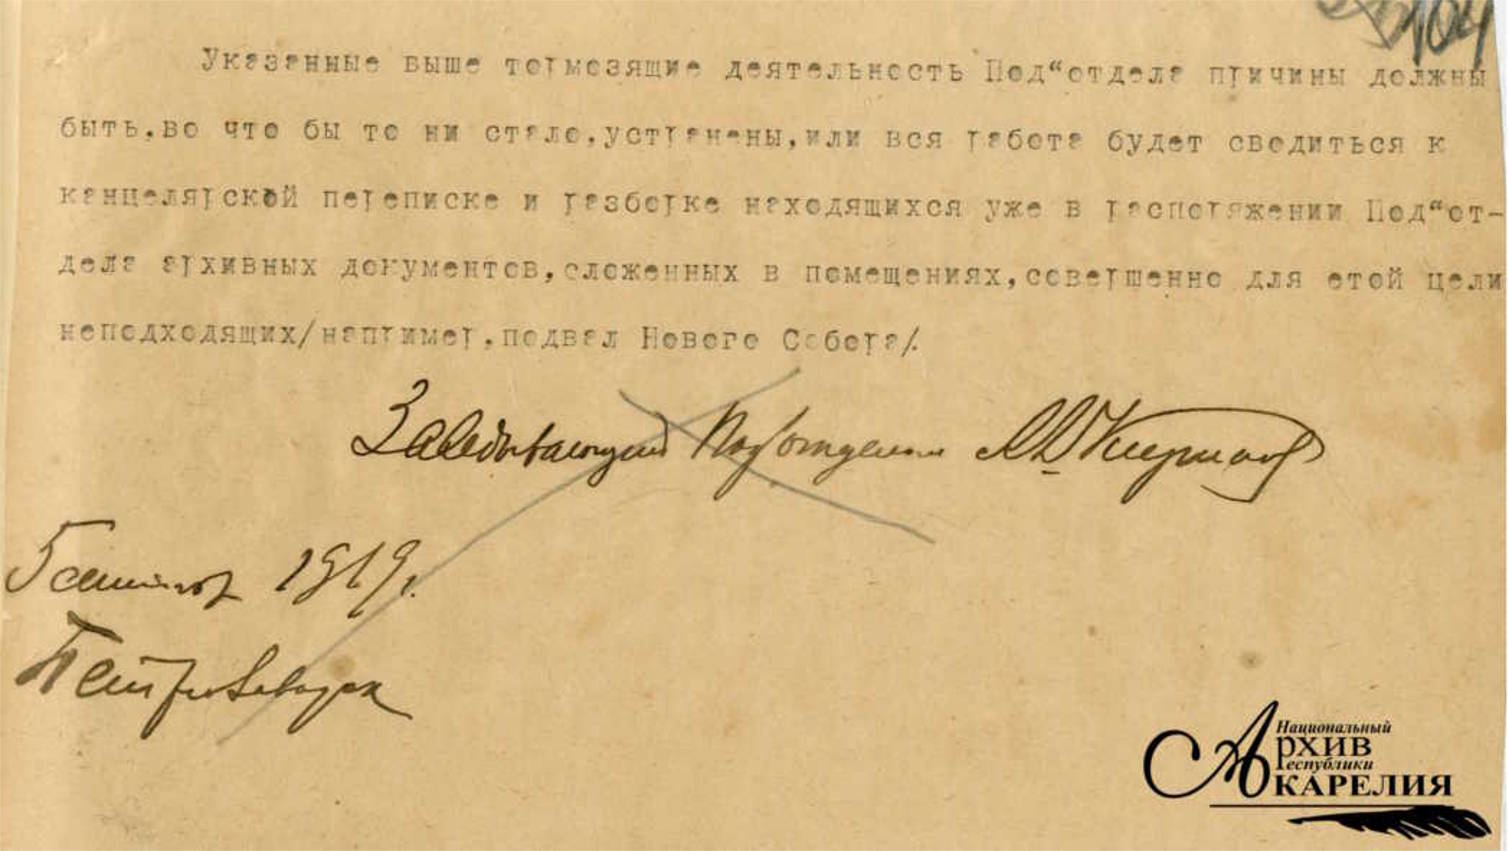 104
Указанные выше тормозящие деятельность Под“отдела причины должны
быть,во что бы то ни стало,устранены,или вся работа будет сводиться к
канцелярской переписке и разборке находящихся уже в распоряжении Под“от-
дела архивных документов,сложенных в помещениях,совершенно для етой цели
неподходящих/например,подвал Нового Собора/.
Заведывающий Подотделом
5 сентября 1919 г.
Петрозаводск
Национальный
Архив
Республики
Карелия